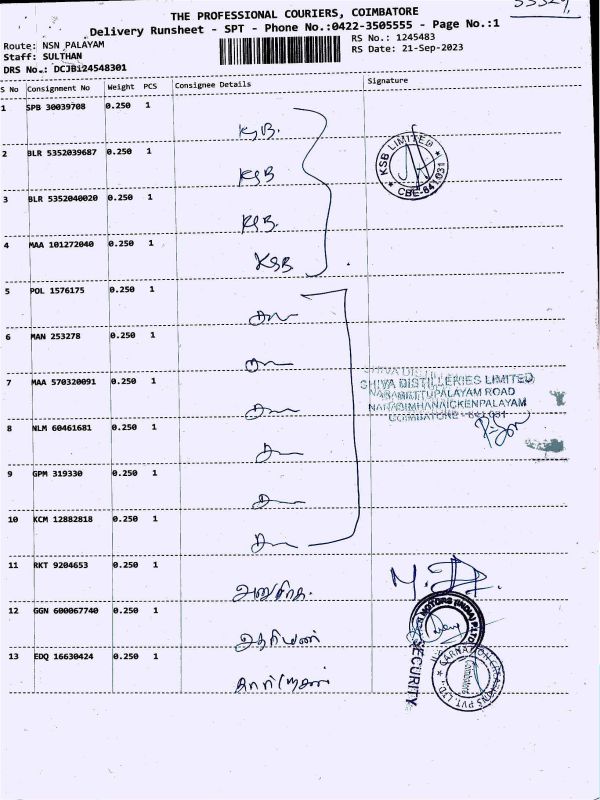 THE PROFESSIONAL COURIERS, COIMBATORE
Delivery Runsheet - SPT - Phone No.:0422-3505555 - Page No.:1
Route: NSN PALAYAM
RS No.: 1245483
Staff: SULTHAN
RS Date: 21-Sep-2023
DRS No.: DCJBi24548301
S No Consignment No Weight PCS Consignee Details Signature
1 SPB 30039708 0.250 1
KSB.
KSB LIMITED
CBE-641031
2 BLR 5352039687 0.250 1
KSB
3 BLR 5352040020 0.250 1
KSB.
4 MAA 101272040 0.250 1
KSB
5 POL 1576175 0.250 1
6 MAN 253278 0.250 1
7 MAA 570320091 0.250 1
SHIVA DISTILLERIES LIMITED
ROAD
NARASIMHANAICKENPALAYAM
COIMBATORE - 641 031
8 NLM 60461681 0.250 1
9 GPM 319330 0.250 1
10 KCM 12882818 0.250 1
11 RKT 9204653 0.250 1
12 GGN 600067740 0.250 1
MOTORS (INDIA) P LTD
SECURITY
13 EDQ 16630424 0.250 1
PVT. LTD.
Coimbatore